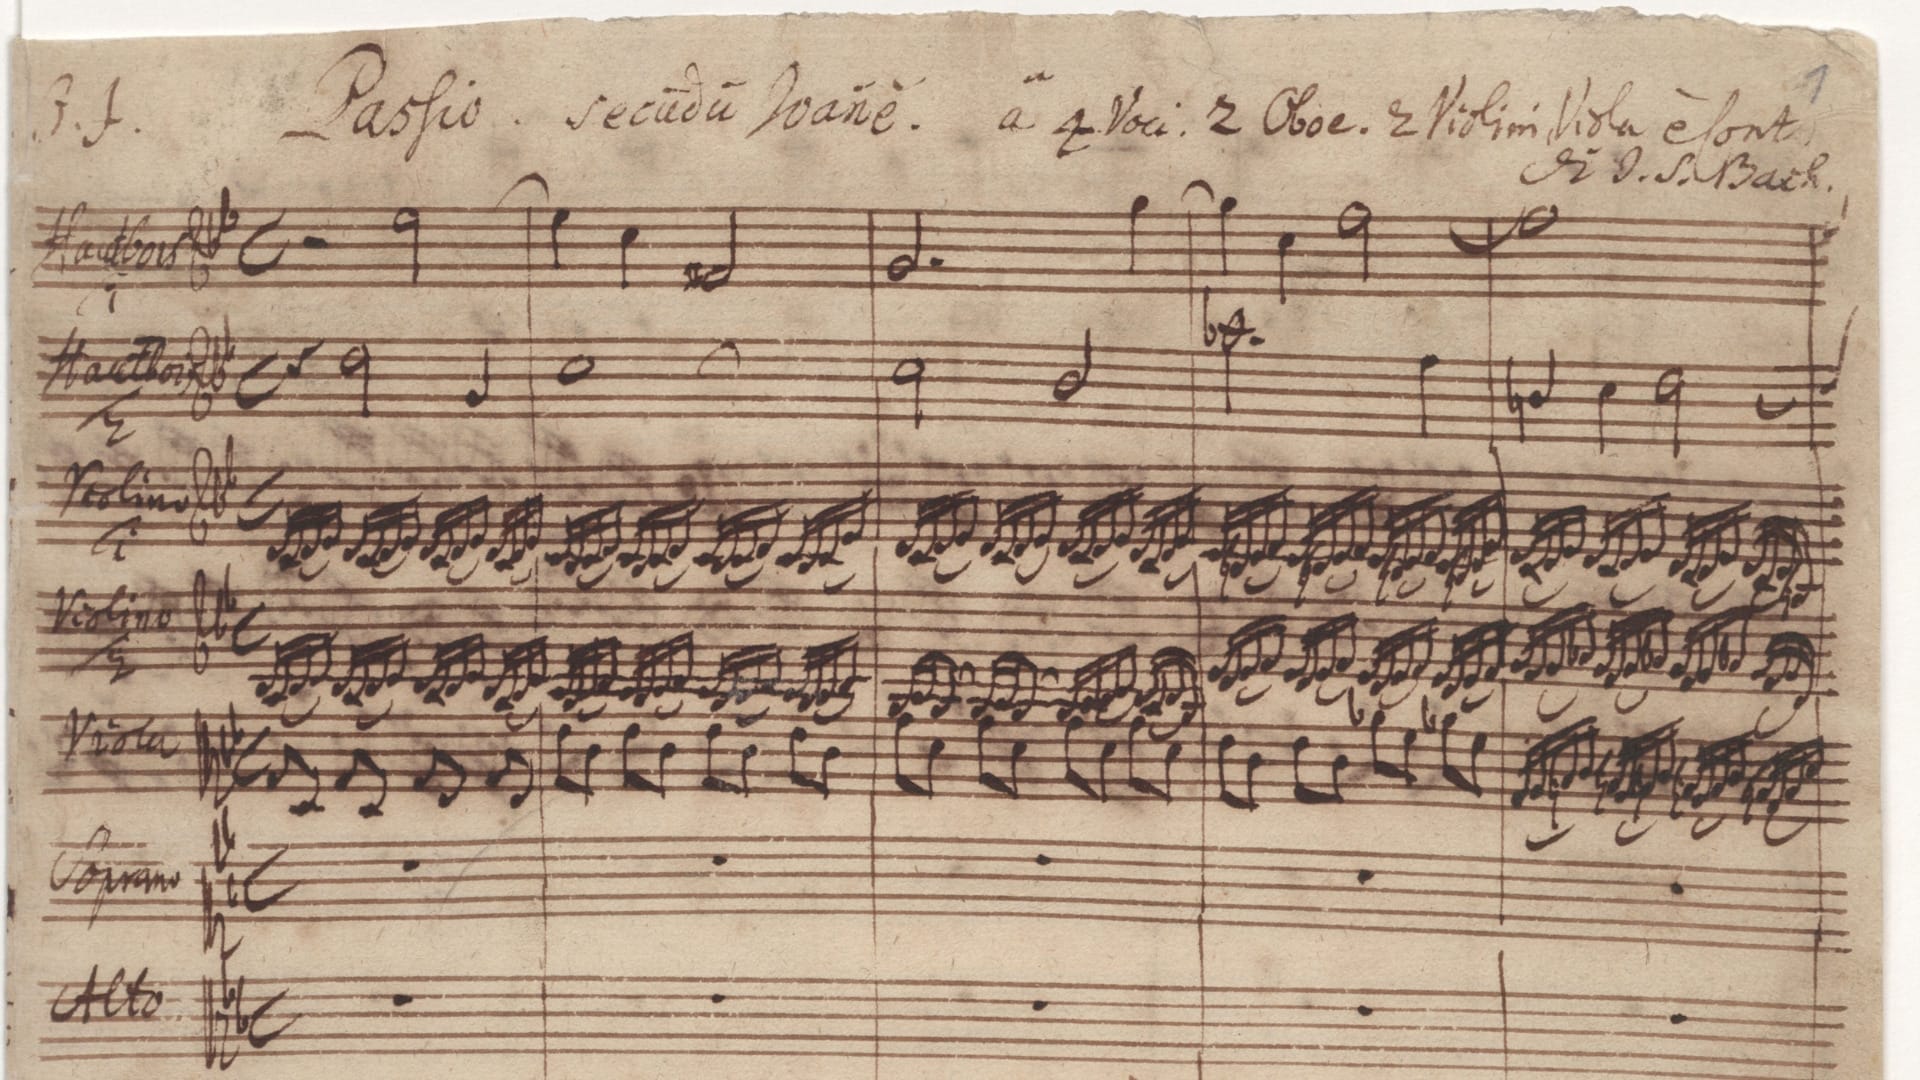 J. J. Passio. secūdū Joañē. â 4 Voci. 2 Oboe. 2 Violini, Viola è Cont.
1
di J. S. Bach.
Hautbois
1
Hautbois
2
Violino
1
Violino
2
Viola
Soprano
Alto